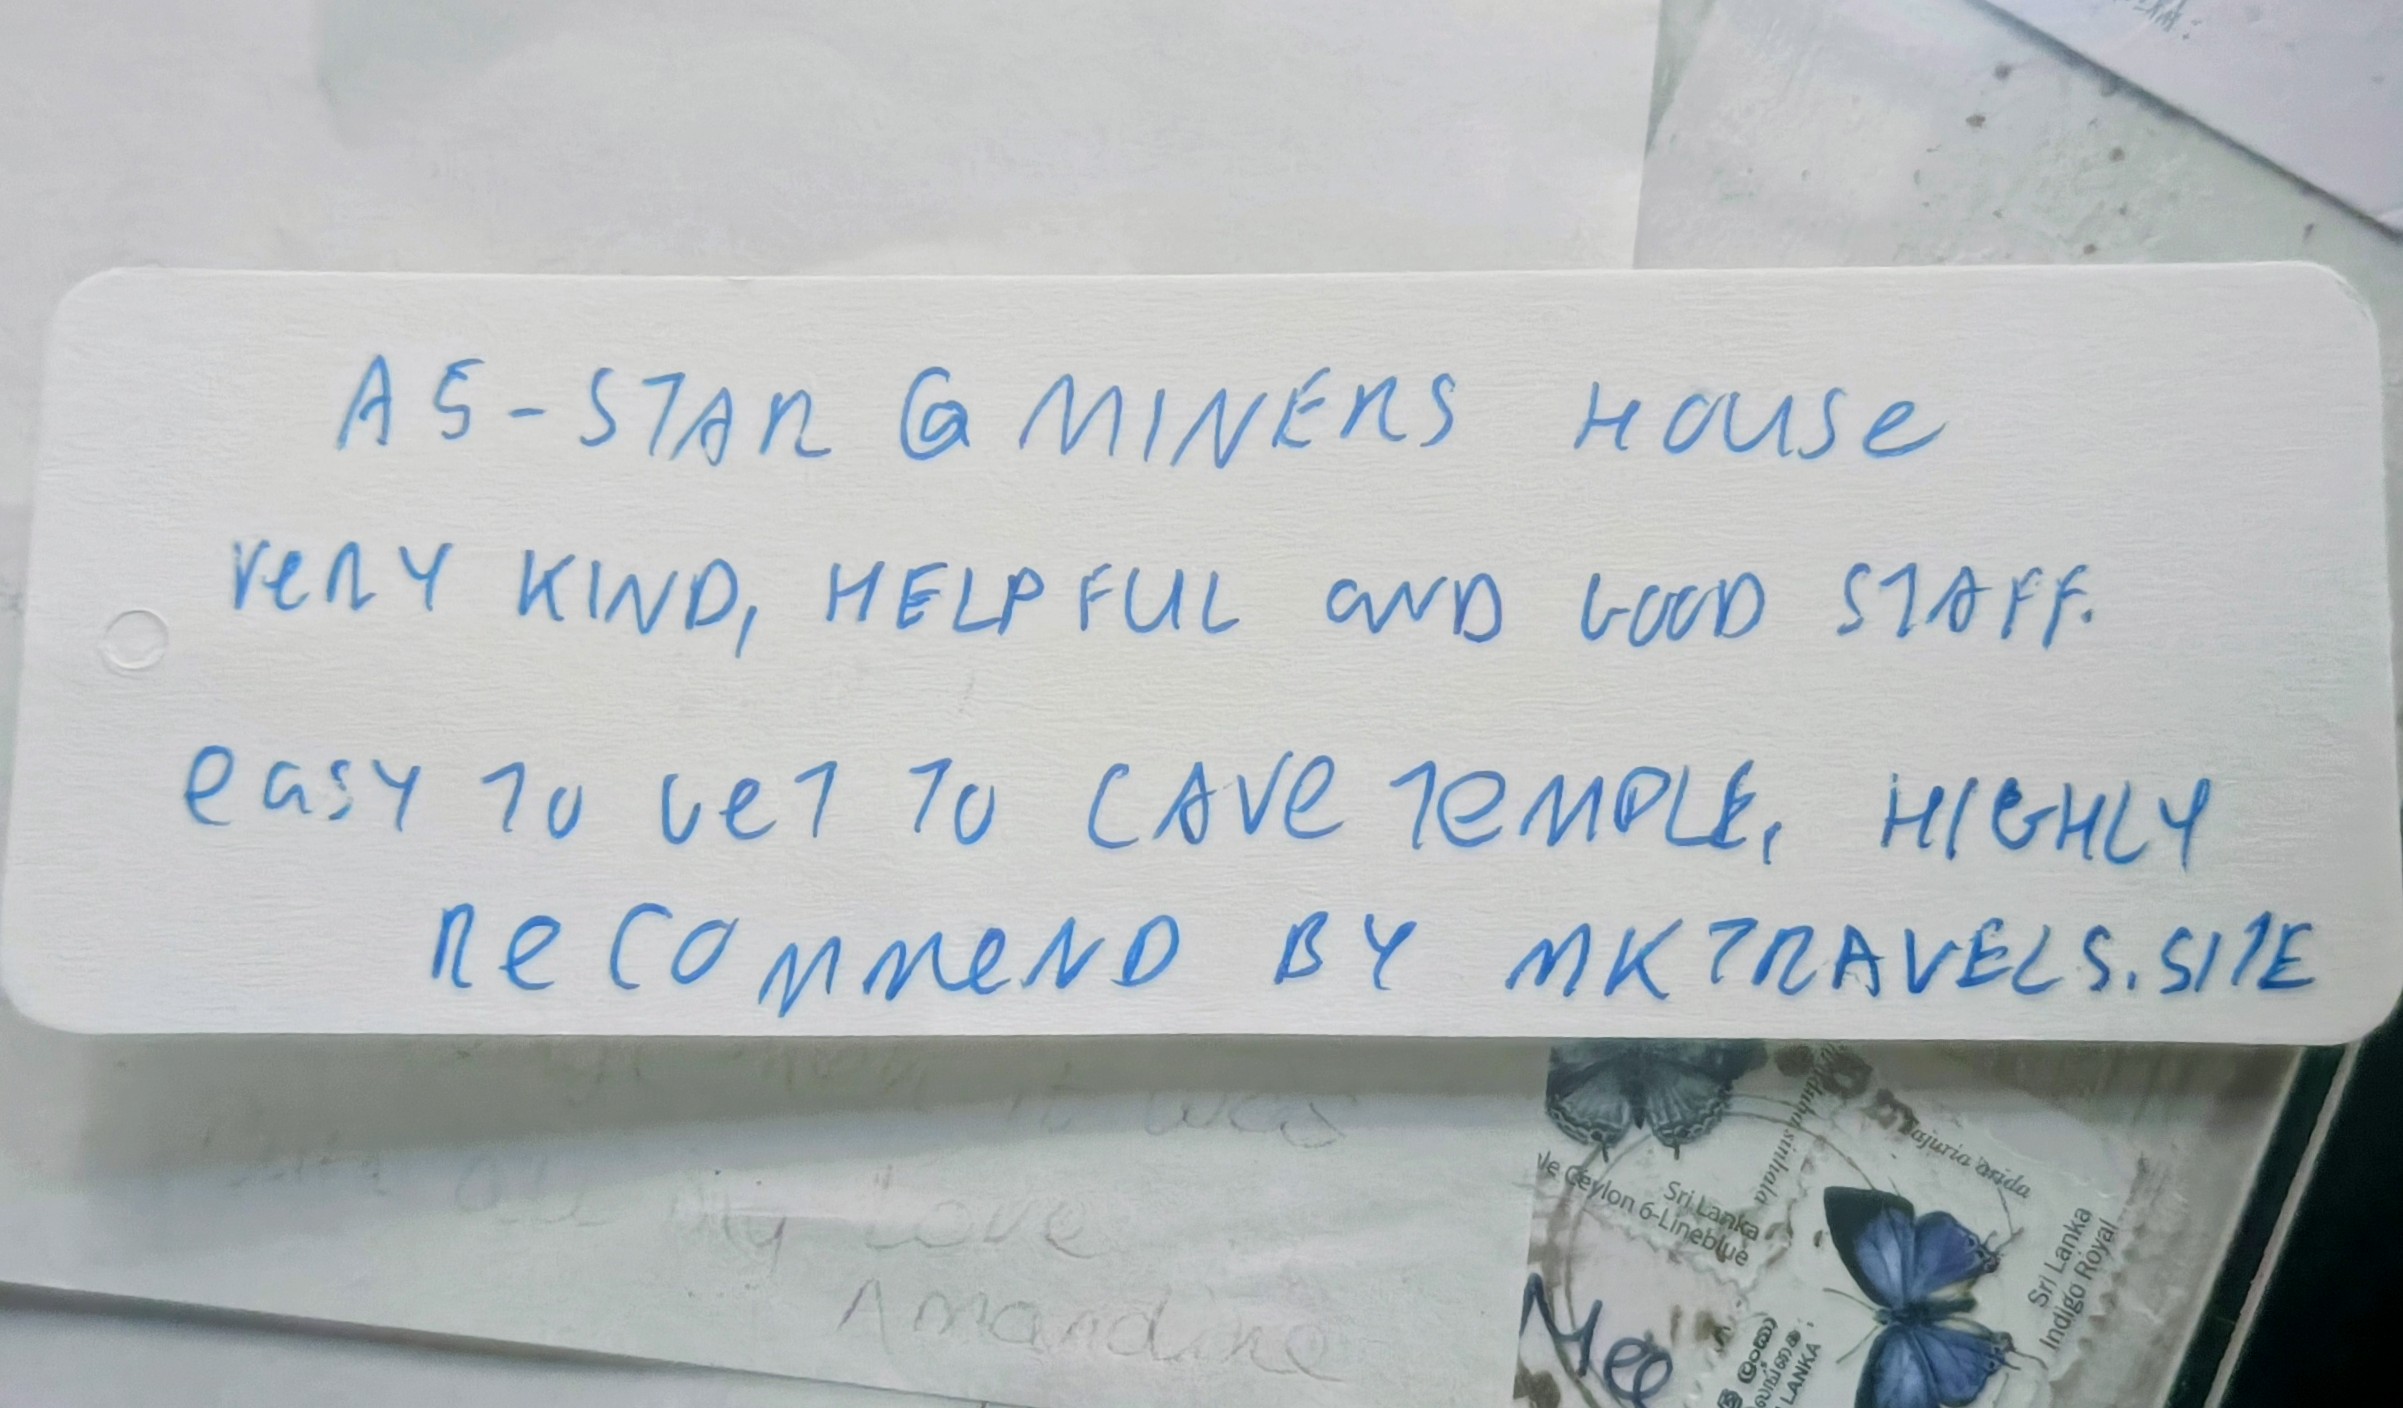 A 5-STAR @ MINERS HOUSE
VERY KIND, HELPFUL AND GOOD STAFF.
EASY TO GET TO CAVE TEMPLE, HIGHLY
RECOMMEND BY MKTRAVELS.SITE
it was
all my love
Amandine
le Ceylon 6-Lineblue
Sri Lanka
sinhala
ajuria arida
Sri Lanka
Indigo Royal
LANKA